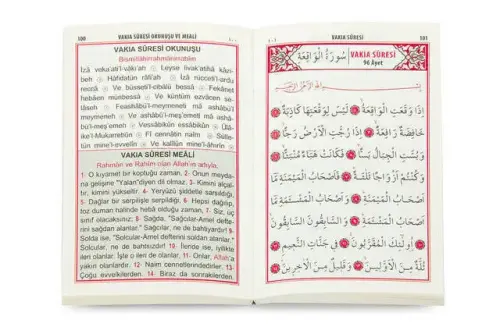 100 VAKIA SÛRESİ OKUNUŞU VE MEALİ ١٠٠
VAKIA SÛRESİ OKUNUŞU
Bismillâhirrahmânirrahîm
İzâ veka'ati'l-vâkı'ah Leyse livak'atihâ kâzi-
beh Hâfidatün râfi'ah İzâ rucceti'l-ardu
recca Ve büsseti'l-cibâlü bessa Fekânet
hebâen münbessa Ve küntüm ezvâcen se-
lâseh Feashâbü'l-meymeneti mâ ashâbü'l-
meymeneh Ve ashâbü'l-meş'emeti mâ ashâ-
bü'l-meş'emeh Vessâbikûn
Ülâike'l-Mukarrebûn Fî cennâtin naîm Sülle-
tün mine'l-evvelîn Ve kalîlün mine'l-âhirîn
VAKIA SÛRESİ MEALİ
Rahmân ve Rahîm olan Allah'ın adıyla,
1- O kıyamet bir koptuğu zaman, 2- Onun meyda-
na gelişine "Yalan"diyen dil olmaz. 3- Kimini alçal-
tır, kimini yükseltir. 4- Yeryüzü şiddetle sarsıldığı,
5- Dağlar bir serpilişle serpildiği, 6- Hepsi dağılıp,
toz duman halinde heba olduğu zaman, 7- Siz, üç
sınıf olacaksınız; 8- Sağda, "Sağcılar-Amel defterini
sağdan alanlar." Sağcılar, ne de bahtiyardır! 9-
Solda ise, "Solcular-Amel defterini soldan alanlar."
Solcular, ne de bahtsızdır! 10- İlerde ise, iyilikte
ileri olanlar. İşte o ileri de olanlar. 11- Onlar, Allah'a
yakın olanlardır. 12- Naîm cennetlerindedirler. 13-
Çoğu evvelkilerden. 14- Biraz da sonrakilerden.
١٠١ VAKIA SÛRESİ 101
سُورَةُ الْوَاقِعَةِ VAKIA SÛRESİ
96 Âyet
إِذَا وَقَعَتِ الْوَاقِعَةُ لَيْسَ لِوَقْعَتِهَا كَاذِبَةٌ
خَافِضَةٌ رَافِعَةٌ إِذَا رُجَّتِ الْأَرْضُ رَجًّا
وَبُسَّتِ الْجِبَالُ بَسًّا فَكَانَتْ هَبَاءً مُنْبَثًّا
وَكُنْتُمْ أَزْوَاجًا ثَلَاثَةً فَأَصْحَابُ الْمَيْمَنَةِ مَا
أَصْحَابُ الْمَيْمَنَةِ وَأَصْحَابُ الْمَشْئَمَةِ مَا
أَصْحَابُ الْمَشْئَمَةِ وَالسَّابِقُونَ السَّابِقُونَ
أُولَٰئِكَ الْمُقَرَّبُونَ فِي جَنَّاتِ النَّعِيمِ
ثُلَّةٌ مِنَ الْأَوَّلِينَ وَقَلِيلٌ مِنَ الْآخِرِينَ